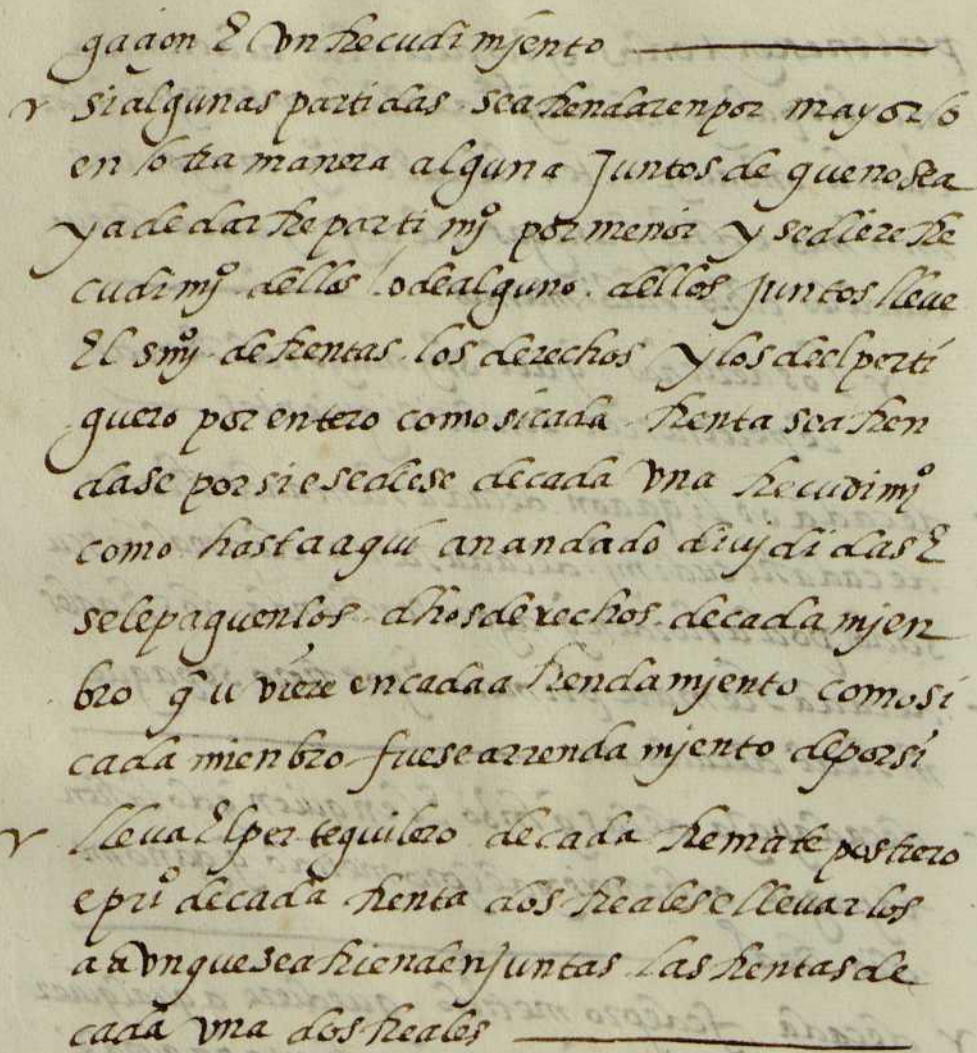 gaçion E Vn Recudimjento
Y si algunas partidas se a Rendaren por mayor o
en otra manera alguna Juntos de que no sea
ya de dar Repartimjº por menor y se diere Re
cudimjº dellos o de alguno dellos juntos lleve
El smjº de Rentas los derechos y los de el perti
guero por entero como si cada Renta se a Ren
dase por si e se diese de cada vna Recudimjº
como hasta aqui an andado diujdidas E
se le paguen los dhos derechos de cada mjen
bro q̃ uviere en cada a Rendamjento como si
cada mienbro fuese arrendamjento de por si
Y lleua El perteguero de cada Remate postrero
e priº de cada Renta dos Reales e lleuar los
a aVnque se a Rienden Juntas las Rentas de
cada vna dos Reales